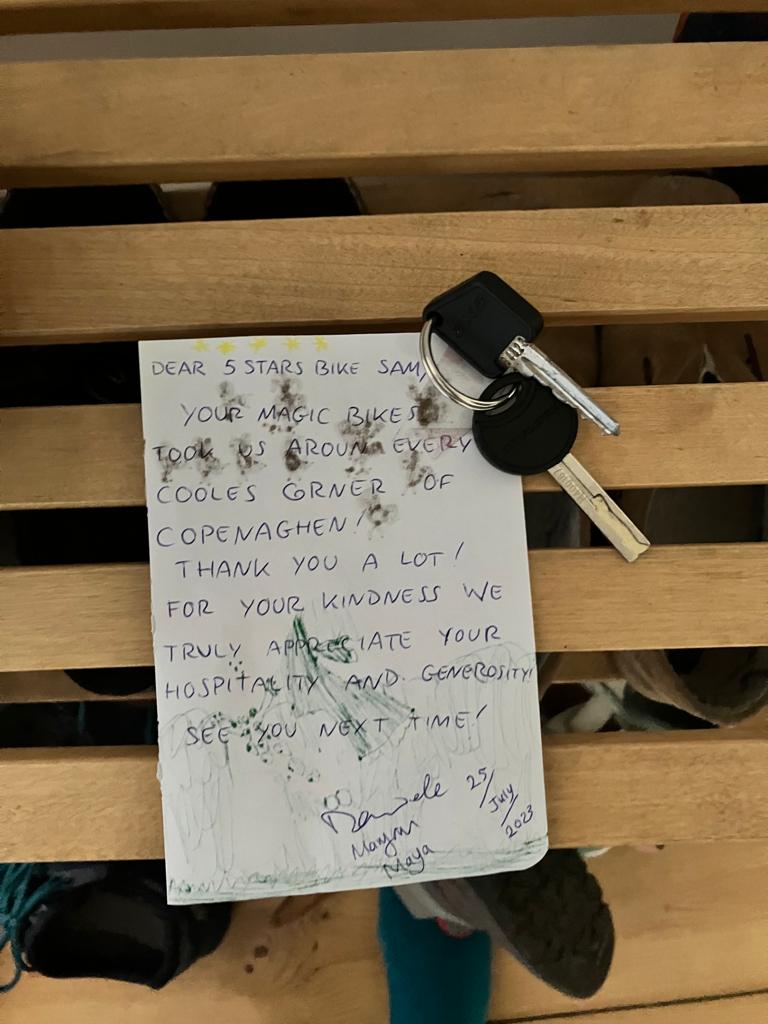 DEAR 5 STARS BIKE SAM,
YOUR MAGIC BIKES
TOOK US AROUN EVERY
COOLES CORNER OF
COPENAGHEN!
THANK YOU A LOT!
FOR YOUR KINDNESS WE
TRULY APPRECIATE YOUR
HOSPITALITY AND GENEROSITY!
SEE YOU NEXT TIME!
Daniele
Maya
25/July/2023